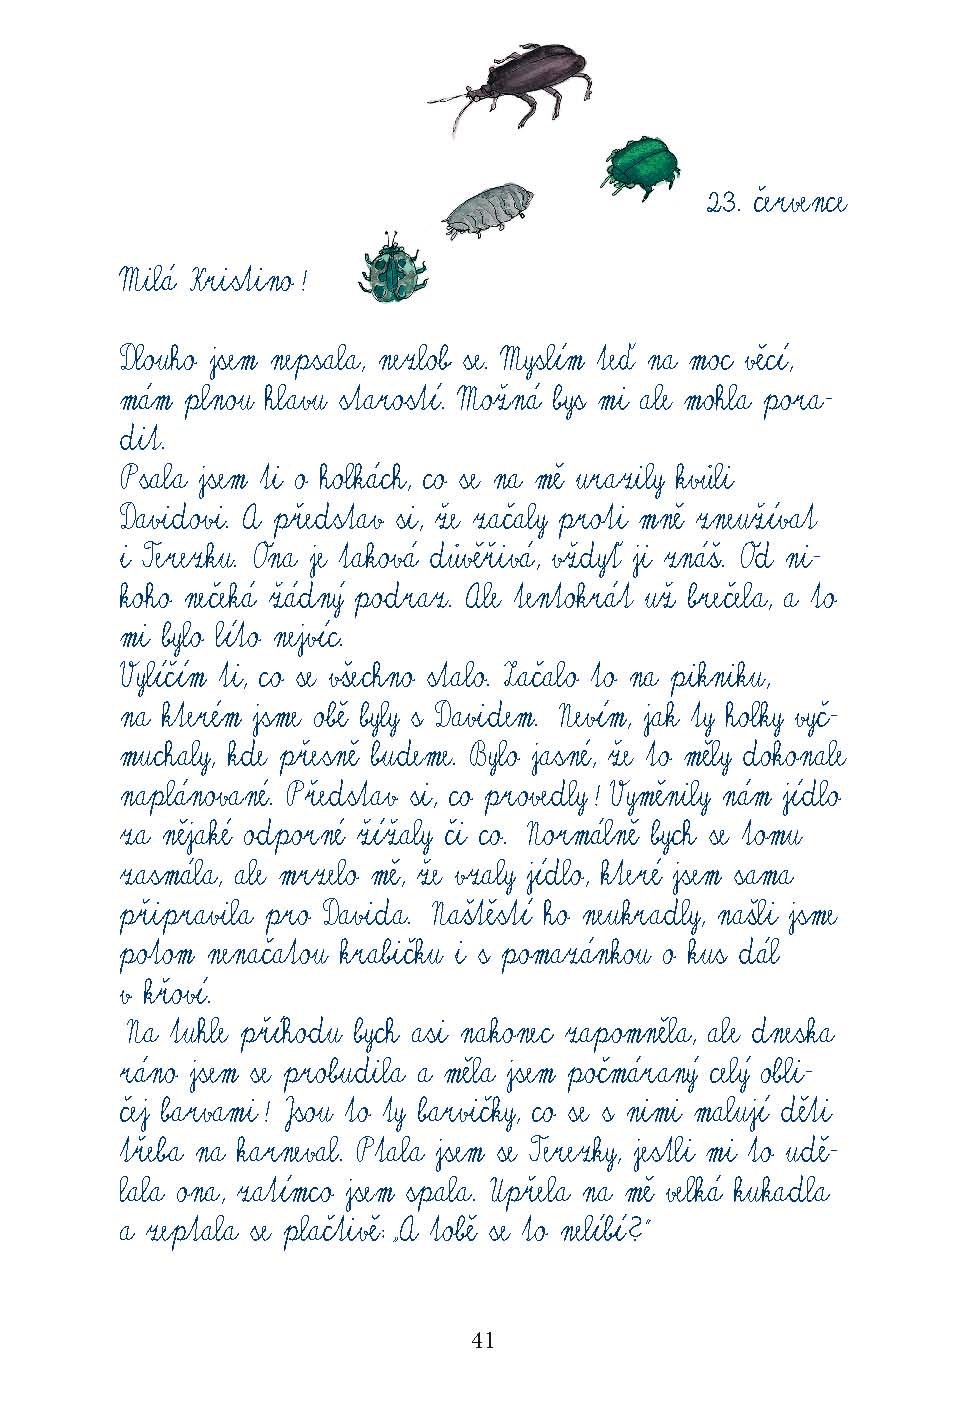 23. července
Milá Kristino!
Dlouho jsem nepsala, nezlob se. Myslím teď na moc věcí,
mám plnou hlavu starostí. Možná bys mi ale mohla pora-
dit.
Psala jsem ti o holkách, co se na mě urazily kvůli
Davidovi. A představ si, že začaly proti mně zneužívat
i Terezku. Ona je taková důvěřivá, vždyť ji znáš. Od ni-
koho nečeká žádný podraz. Ale tentokrát už brečela, a to
mi bylo líto nejvíc.
Vylíčím ti, co se všechno stalo. Začalo to na pikniku,
na kterém jsme obě byly s Davidem. Nevím, jak ty holky vyč-
muchaly, kde přesně budeme. Bylo jasné, že to měly dokonale
naplánované. Představ si, co provedly! Vyměnily nám jídlo
za nějaké odporné žížaly či co. Normálně bych se tomu
zasmála, ale mrzelo mě, že vzaly jídlo, které jsem sama
připravila pro Davida. Naštěstí ho neukradly, našli jsme
potom nenačatou krabičku i s pomazánkou o kus dál
v křoví.
Na tuhle příhodu bych asi nakonec zapomněla, ale dneska
ráno jsem se probudila a měla jsem počmáraný celý obli-
čej barvami! Jsou to ty barvičky, co se s nimi malují děti
třeba na karneval. Ptala jsem se Terezky, jestli mi to udě-
lala ona, zatímco jsem spala. Upřela na mě velká kukadla
a zeptala se plačtivě: „A tobě se to nelíbí?"
41